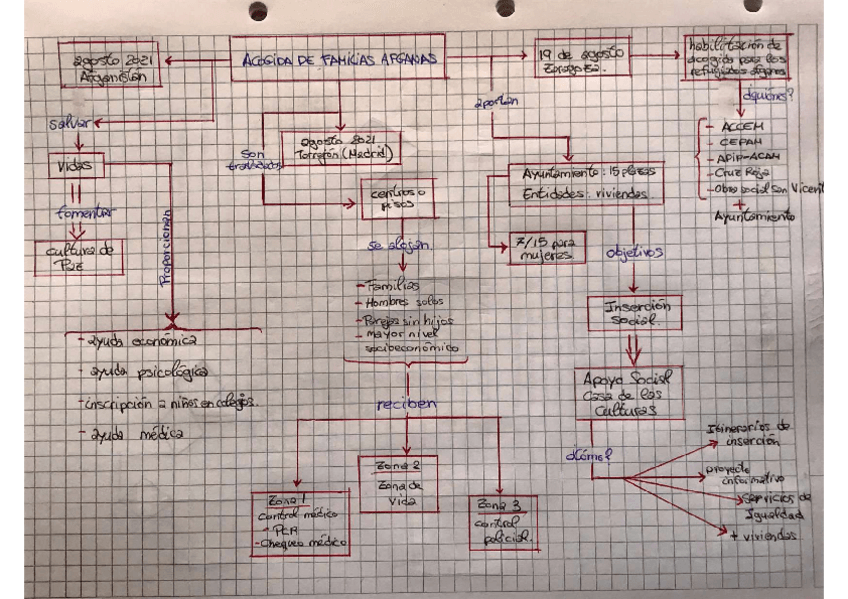 agosto 2021
Afganistán
ACOGIDA DE FAMILIAS AFGANAS
19 de agosto
Zaragoza.
habilitación de
acogida para los
refugiados afganos
¿quiénes?
- ACCEM
- CEPAIM
- APIP-ACAM
- Cruz Roja
- Obra social San Vicente
+
Ayuntamiento
salvar
Vidas
fomentar
cultura de
Paz
Proporcionan
- ayuda económica
- ayuda psicológica
- inscripción a niños en colegios.
- ayuda médica
son
trasladados
agosto 2021
Torrejón (Madrid)
centros o
pisos
se alojan
- Familias
- Hombres solos
- Parejas sin hijos
- mayor nivel
socioeconómico
reciben
Zona 1
control médico
- PCR
- Chequeo médico
Zona 2
Zona de
Vida
Zona 3
control
policial.
aportan
Ayuntamiento: 15 plazas
Entidades: viviendas.
7/15 para
mujeres.
objetivos
Inserción
Social.
Apoyo Social
Casa de las
Culturas
¿Cómo?
Itinerarios de
inserción
proyecto
informativo
servicios de
Igualdad
+ viviendas